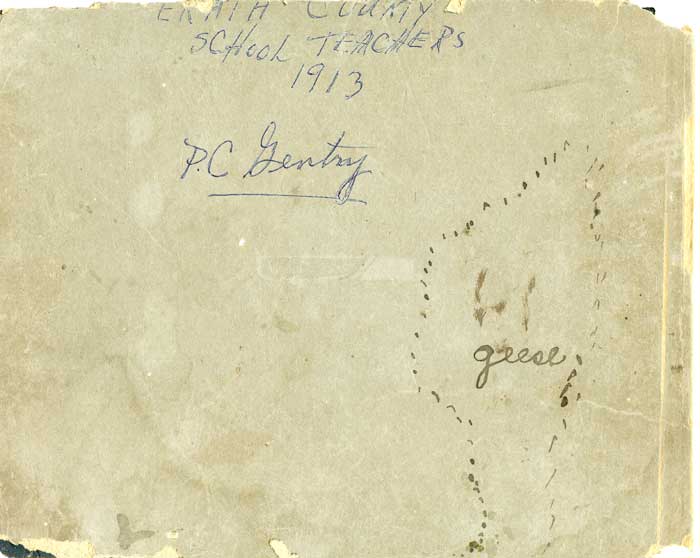 ERATH COUNTY
SCHOOL TEACHERS
1913
P.C Gentry
geese